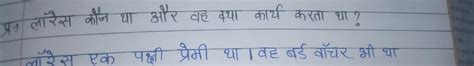 प्र→ लारेंस कौन था और वह क्या कार्य करता था ?
लॉरेंस एक पक्षी प्रेमी था । वह बर्ड वॉचर भी था